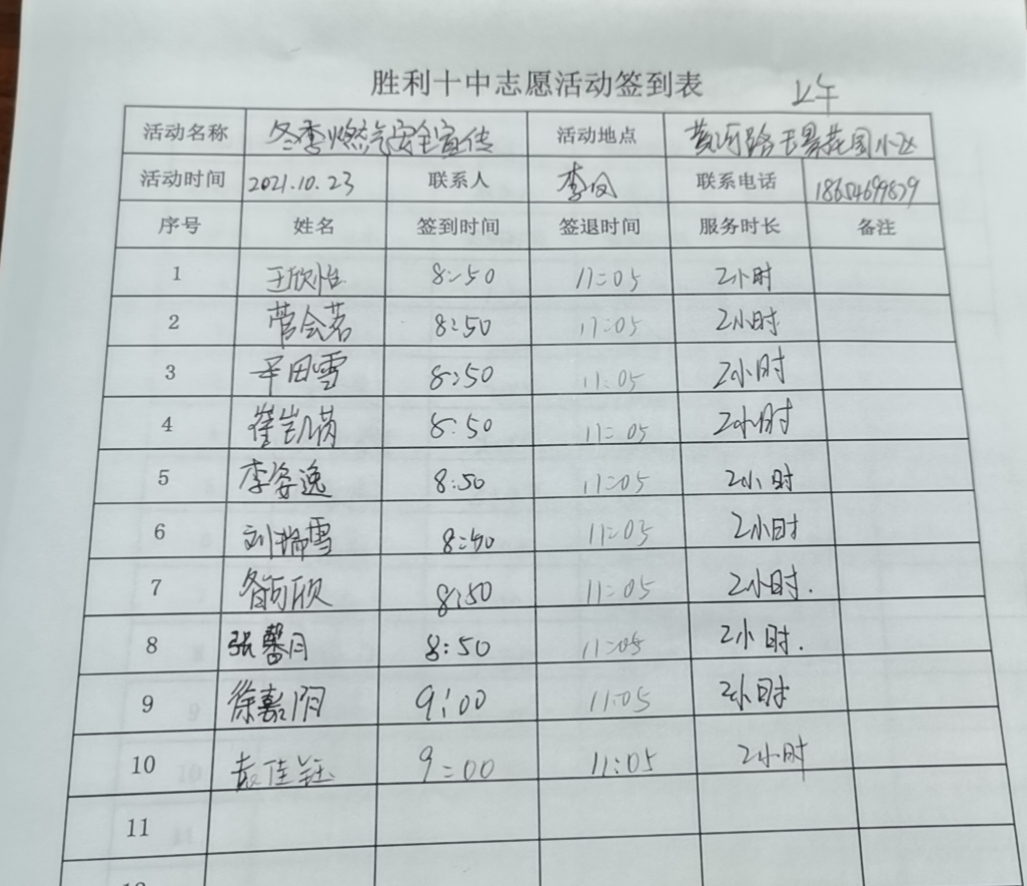 胜利十中志愿活动签到表 上午
活动名称 冬季燃气安全宣传 活动地点 黄河路天景花园小区
活动时间 2021.10.23 联系人 李凤 联系电话
序号 姓名 签到时间 签退时间 服务时长 备注
1 王欣怡 8:50 11:05 2小时
2 菅会茗 8:50 11:05 2小时
3 平田雪 8:50 11:05 2小时
4 崔凯 8:50 11:05 2小时
5 李姿逸 8:50 11:05 2小时
6 刘瑞雪 8:50 11:05 2小时
7 欣 8:50 11:05 2小时.
8 张馨月 8:50 11:05 2小时.
9 徐嘉阳 9:00 11:05 2小时
10 袁佳钰 9:00 11:05 2小时
11